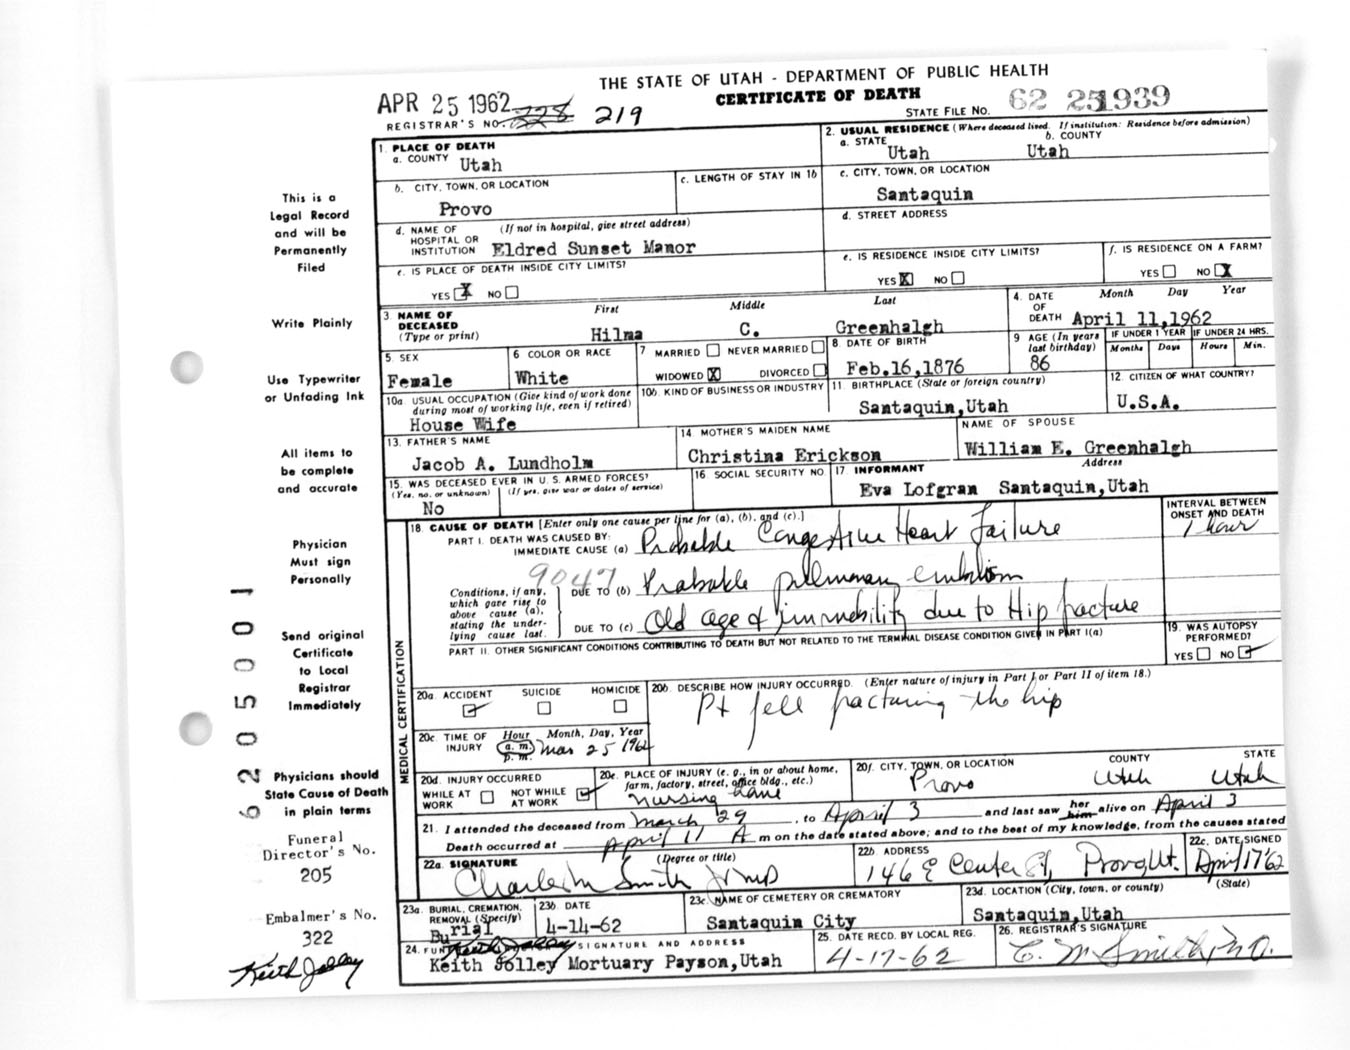 THE STATE OF UTAH - DEPARTMENT OF PUBLIC HEALTH
CERTIFICATE OF DEATH
APR 25 1962
REGISTRAR'S NO. 228 219
STATE FILE NO. 62 251939
1. PLACE OF DEATH
a. COUNTY Utah
2. USUAL RESIDENCE (Where deceased lived. If institution: Residence before admission)
a. STATE Utah b. COUNTY Utah
b. CITY, TOWN, OR LOCATION Provo
c. LENGTH OF STAY IN 1b
c. CITY, TOWN, OR LOCATION Santaquin
d. NAME OF HOSPITAL OR INSTITUTION (If not in hospital, give street address) Eldred Sunset Manor
d. STREET ADDRESS
e. IS PLACE OF DEATH INSIDE CITY LIMITS?
YES X NO
e. IS RESIDENCE INSIDE CITY LIMITS?
YES X NO
f. IS RESIDENCE ON A FARM?
YES NO X
3. NAME OF DECEASED (Type or print) First Middle Last
Hilma C. Greenhalgh
4. DATE OF DEATH Month Day Year
April 11,1962
5. SEX Female
6 COLOR OR RACE White
7 MARRIED NEVER MARRIED
WIDOWED X DIVORCED
8. DATE OF BIRTH Feb.16,1876
9 AGE (In years last birthday) 86
IF UNDER 1 YEAR Months Days
IF UNDER 24 HRS. Hours Min.
10a. USUAL OCCUPATION (Give kind of work done during most of working life, even if retired)
House Wife
10b. KIND OF BUSINESS OR INDUSTRY
11. BIRTHPLACE (State or foreign country)
Santaquin,Utah
12. CITIZEN OF WHAT COUNTRY?
U.S.A.
13. FATHER'S NAME
Jacob A. Lundholm
14. MOTHER'S MAIDEN NAME
Christina Erickson
NAME OF SPOUSE
William E. Greenhalgh
15. WAS DECEASED EVER IN U.S. ARMED FORCES?
(Yes, no, or unknown) (If yes, give war or dates of service)
No
16. SOCIAL SECURITY NO
17 INFORMANT Address
Eva Lofgran Santaquin,Utah
18. CAUSE OF DEATH [Enter only one cause per line for (a), (b), and (c).]
INTERVAL BETWEEN ONSET AND DEATH
PART I. DEATH WAS CAUSED BY:
IMMEDIATE CAUSE (a) Probable Congestive Heart Failure 1 hour
9047
Conditions, if any, which gave rise to above cause (a), stating the underlying cause last.
DUE TO (b) Probable pulmonary embolism
DUE TO (c) Old age & immobility due to Hip fracture
PART II. OTHER SIGNIFICANT CONDITIONS CONTRIBUTING TO DEATH BUT NOT RELATED TO THE TERMINAL DISEASE CONDITION GIVEN IN PART I(a)
19. WAS AUTOPSY PERFORMED?
YES NO
MEDICAL CERTIFICATION
20a. ACCIDENT SUICIDE HOMICIDE
20b. DESCRIBE HOW INJURY OCCURRED. (Enter nature of injury in Part I or Part II of item 18.)
Pt fell fracturing the hip
20c. TIME OF INJURY Hour Month, Day, Year
a. m. p. m. Mar 25 1962
20d. INJURY OCCURRED
WHILE AT WORK NOT WHILE AT WORK
20e. PLACE OF INJURY (e. g., in or about home, farm, factory, street, office bldg., etc.)
Nursing Home
20f. CITY, TOWN, OR LOCATION COUNTY STATE
Provo Utah Utah
21. I attended the deceased from March 29, to April 3 and last saw her him alive on April 3
Death occurred at April 11 A m on the date stated above; and to the best of my knowledge, from the causes stated
22a. SIGNATURE (Degree or title)
Charles M Smith Jr MD
22b. ADDRESS
146 E Center St, Provo, Ut.
22c. DATE SIGNED
April 17 '62
23a. BURIAL, CREMATION, REMOVAL (Specify)
Burial
23b. DATE
4-14-62
23c. NAME OF CEMETERY OR CREMATORY
Santaquin City
23d. LOCATION (City, town, or county) (State)
Santaquin,Utah
24. SIGNATURE AND ADDRESS
Keith Jolley
Keith Jolley Mortuary Payson,Utah
25. DATE RECD. BY LOCAL REG.
4-17-62
26. REGISTRAR'S SIGNATURE
C. M Smith, M.D.
This is a
Legal Record
and will be
Permanently
Filed
Write Plainly
Use Typewriter
or Unfading Ink
All items to
be complete
and accurate
Physician
Must sign
Personally
Send original
Certificate
to Local
Registrar
Immediately
Physicians should
State Cause of Death
in plain terms
Funeral
Director's No.
205
Embalmer's No.
322
Keith Jolley
620 5001